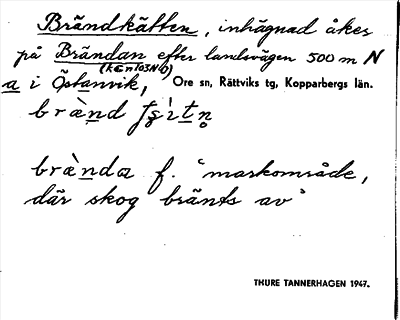 Brändkätten, inhägnad åker
på Brändan efter landsvägen 500 m N
a i Östanvik, Ore sn, Rättviks tg, Kopparbergs län.
brànda f. "markområde,
där skog bränts av"
THURE TANNERHAGEN 1947.